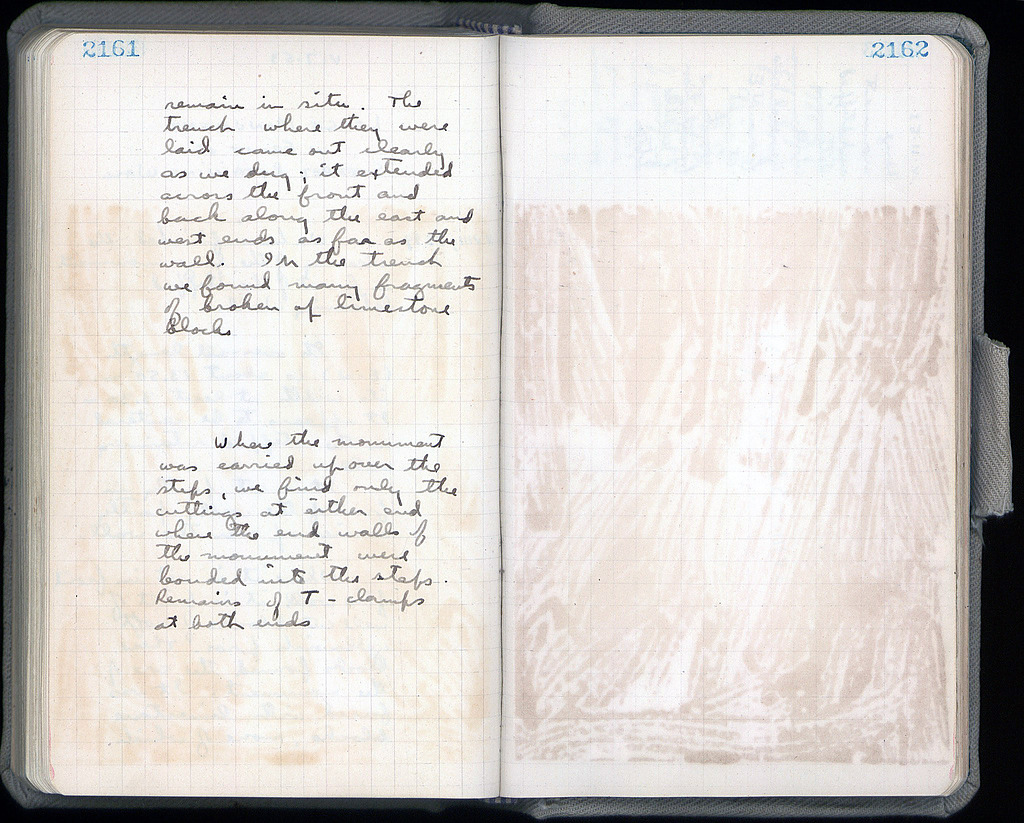 2161
remain in situ. The
trench where they were
laid came out clearly
as we dug; it extended
across the front and
back along the east and
west ends as far as the
wall. In the trench
we found many fragments
of broken of limestone
blocks
Where the monument
was carried up over the
steps, we find only the
cuttings at either end
where the end walls of
the monument were
bonded into the steps.
Remains of T-clamps
at both ends
2162